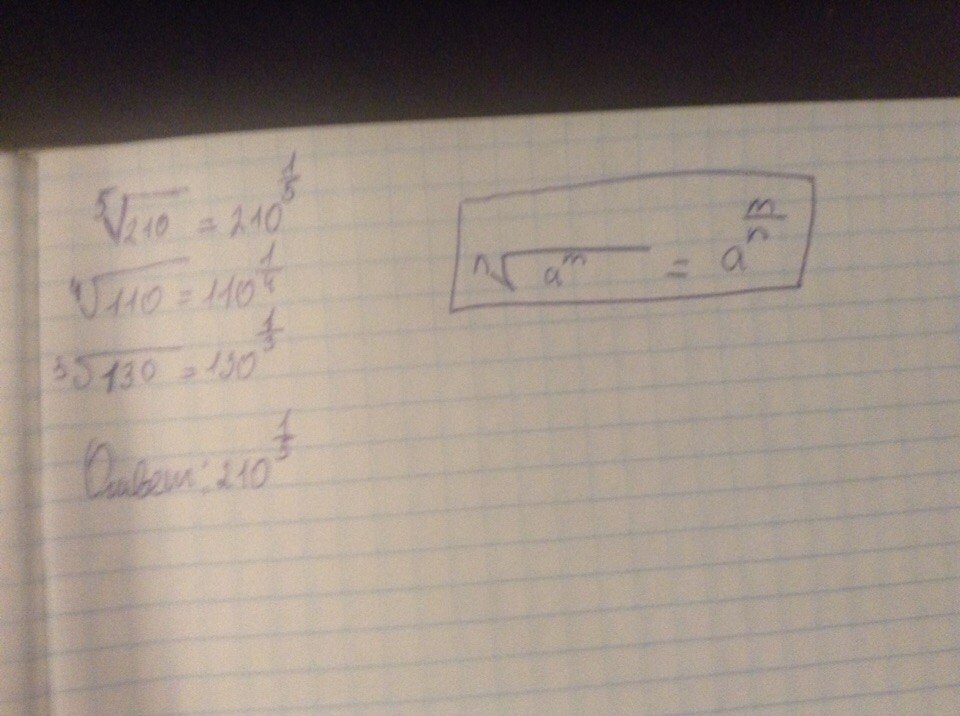 ⁵√210 = 210^(1/5)
⁴√110 = 110^(1/4)
³√130 = 130^(1/3)
Ответ: 210^(1/5)
ⁿ√(a^m) = a^(m/n)